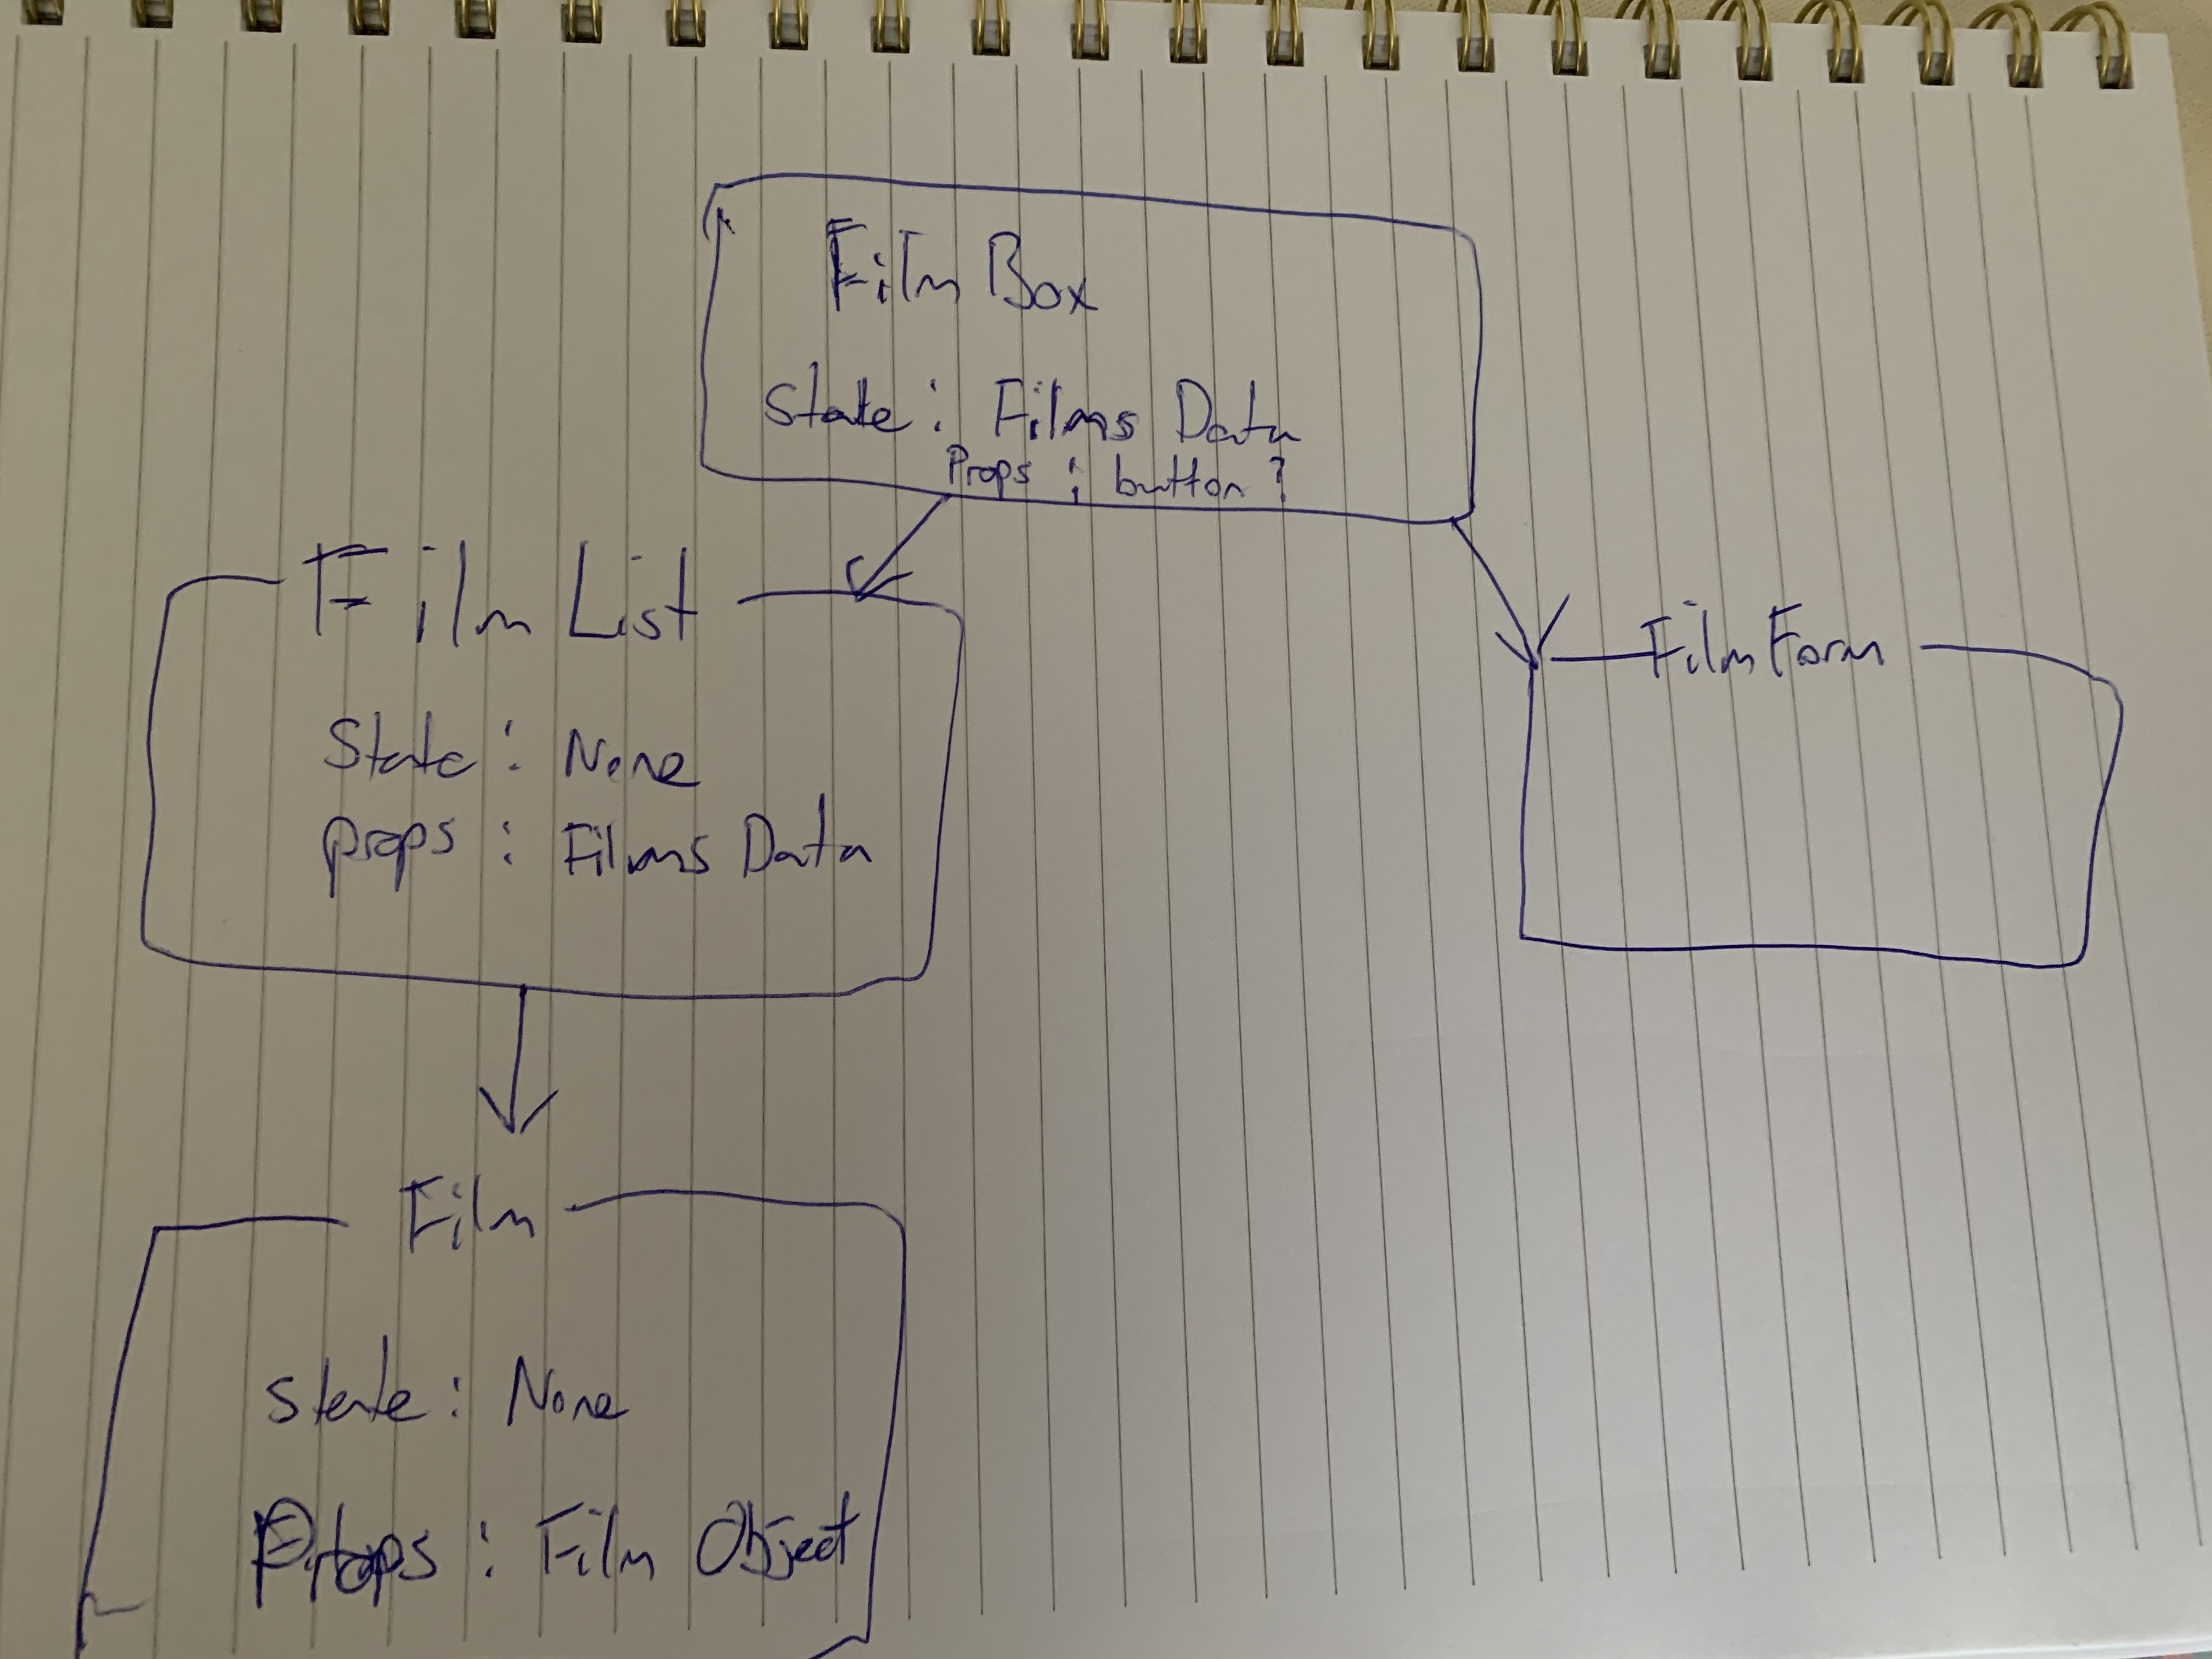 Film Box
State : Films Data
Props : button ?
Film List
State : None
Props : Films Data
Film Form
Film
State : None
Props : Film Object